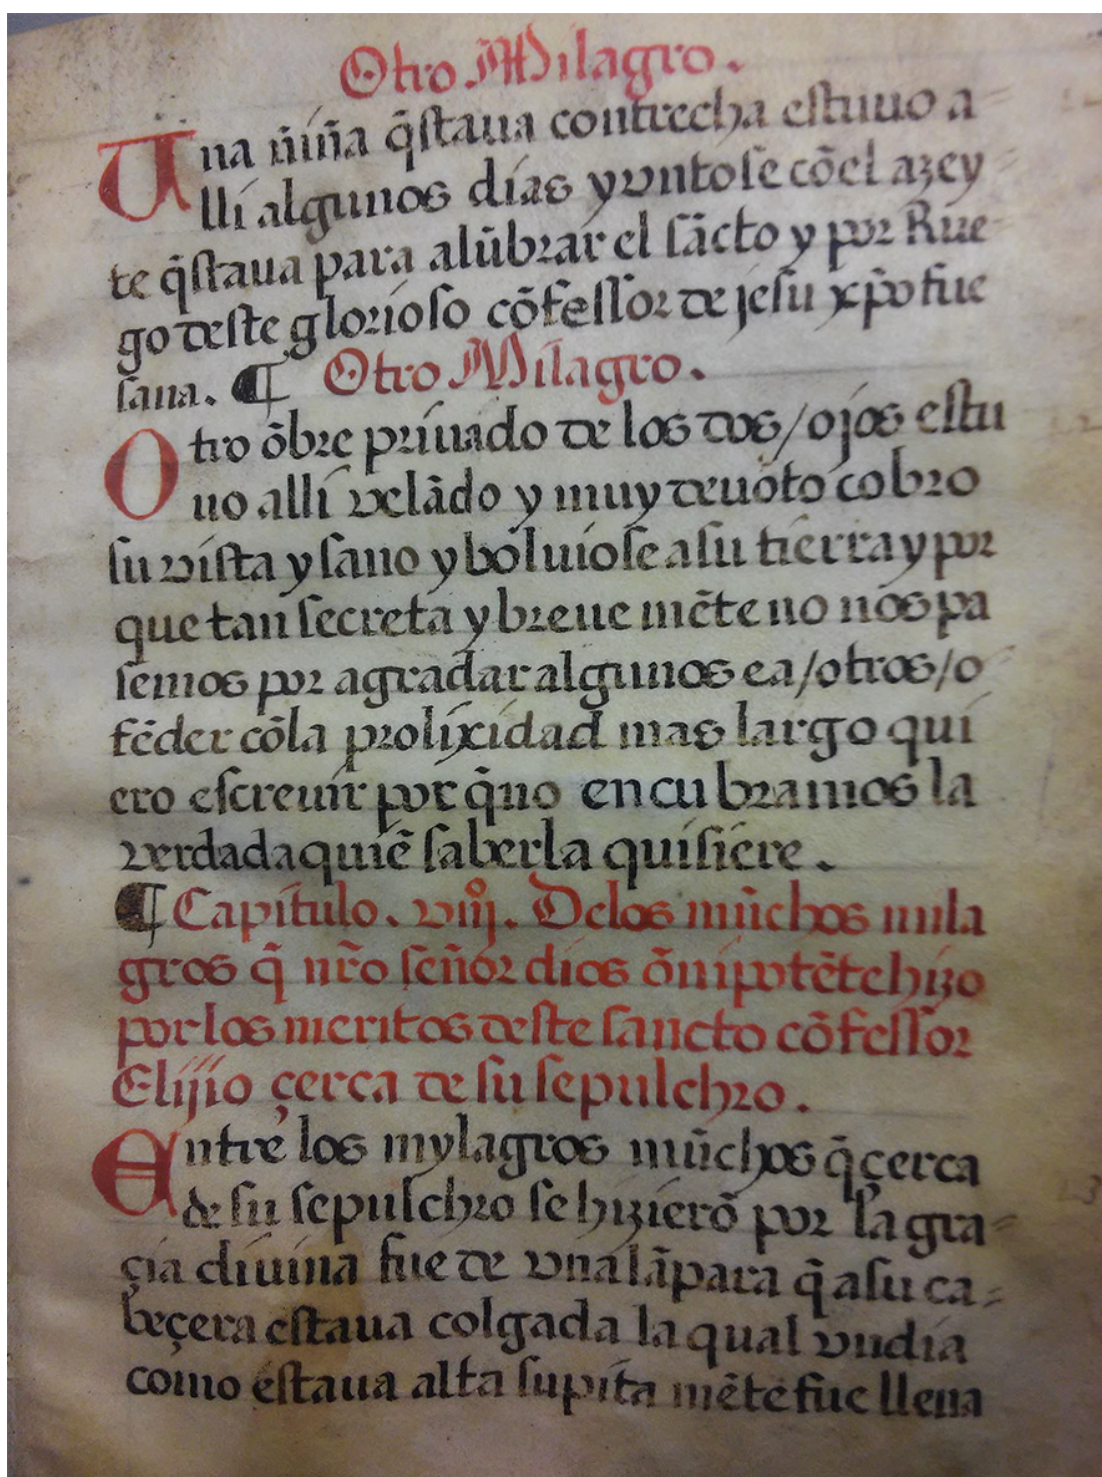 Otro Milagro.
Una niña q̃staua contrecha estuuo a
lli algunos dias y vntose cõel azey
te q̃staua para alũbrar el sãcto y por Rue
go deste glorioso cõfessor de jesu xp̃o fue
sana. ¶ Otro Milagro.
Otro õbre priuado de los dos/ojos estu
uo alli velãdo y muy deuoto cobro
su vista y sano y boluiose a su tierra y por
que tan secreta y breue mẽte no nos pa
semos por agradar algunos ea/otros/o
fẽder cõla prolixidad mas largo qui
ero escreuir por q̃no encubramos la
verdad a quiẽ saberla quisiere.
¶ Capitulo. viijº. Delos mũchos mila
gros q̃ nr̃o señor dios õnipotẽte hizo
por los meritos deste sancto cõfessor
Elijio çerca de su sepulchro.
Entre los mylagros mũchos q̃ çerca
de su sepulchro se hizierõ por la gra-
çia diuina fue de vna lãpara q̃ a su ca-
beçera estaua colgada la qual vn dia
como estaua alta supita mẽte fue llena